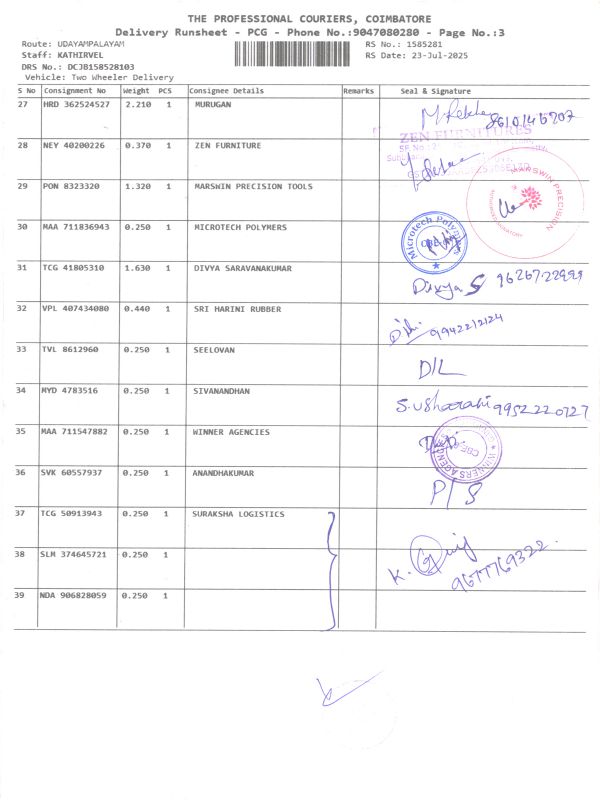 THE PROFESSIONAL COURIERS, COIMBATORE
Delivery Runsheet - PCG - Phone No.:9047080280 - Page No.:3
Route: UDAYAMPALAYAM RS No.: 1585281
Staff: KATHIRVEL RS Date: 23-Jul-2025
DRS No.: DCJB158528103
Vehicle: Two Wheeler Delivery
S No Consignment No Weight PCS Consignee Details Remarks Seal & Signature
27 HRD 362524527 2.210 1 MURUGAN
28 NEY 40200226 0.370 1 ZEN FURNITURE ZEN FURNITURES
29 PON 8323320 1.320 1 MARSWIN PRECISION TOOLS MARSWIN PRECISION
30 MAA 711836943 0.250 1 MICROTECH POLYMERS Microtech Polymers
31 TCG 41805310 1.630 1 DIVYA SARAVANAKUMAR Divya S 9626722999
32 VPL 407434080 0.440 1 SRI HARINI RUBBER 9942212124
33 TVL 8612960 0.250 1 SEELOVAN D/L
34 MYD 4783516 0.250 1 SIVANANDHAN 9952220727
35 MAA 711547882 0.250 1 WINNER AGENCIES
36 SVK 60557937 0.250 1 ANANDHAKUMAR P/S
37 TCG 50913943 0.250 1 SURAKSHA LOGISTICS
38 SLM 374645721 0.250 1 K. 9677769322
39 NDA 906828059 0.250 1